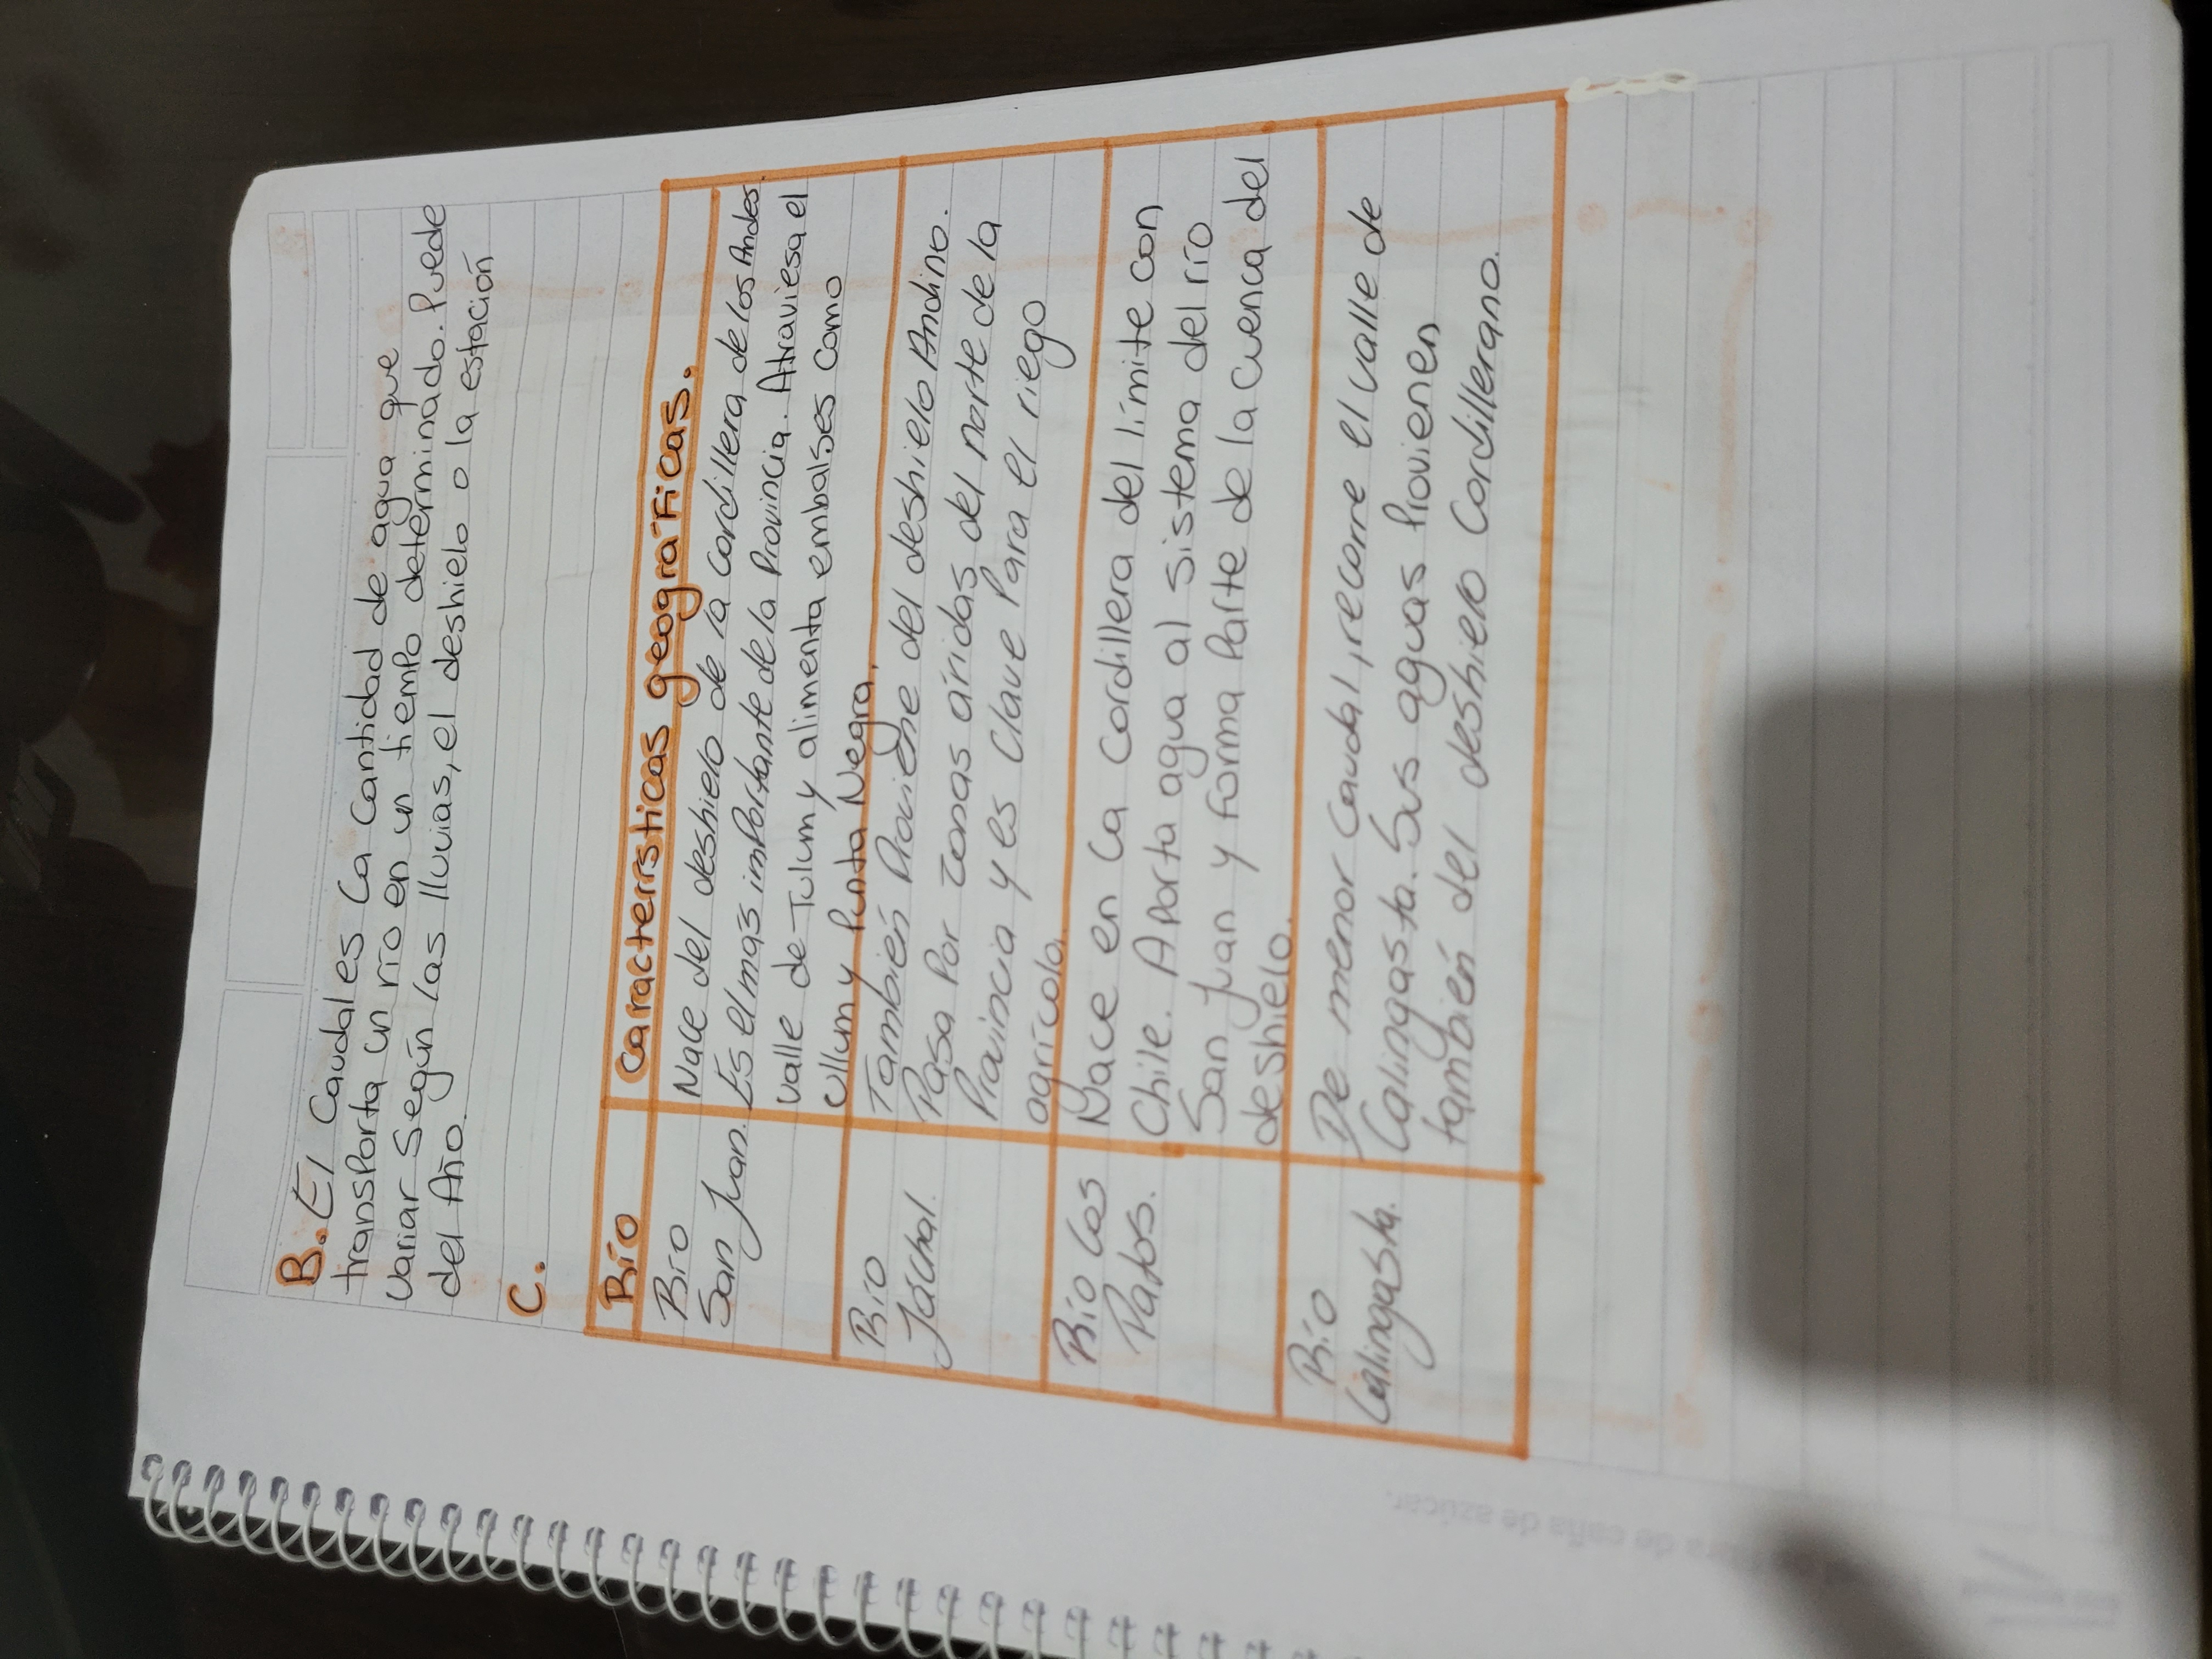 B. El Caudal es La Cantidad de agua que
transporta un río en un tiempo determinado. Puede
Variar Según las lluvias, el deshielo o la estación
del Año.
C.
Río Caracterrsticas geográficas.
Río San Juan. Nace del deshielo de la Cordillera de los Andes.
Es el mas importante de la Provincia. Atraviesa el
Valle de Tulum y alimenta embalses Como
Ullum y Punta Negra.
Río Jáchal. También Proviene del deshielo Andino.
Pasa Por zonas áridas del norte de la
Provincia y es Clave Para el riego
agrícola.
Río Los Patos. Nace en La Cordillera del límite con
Chile. Aporta agua al sistema del río
San Juan y forma Parte de la Cuenca del
deshielo.
Río Calingasta. De menor Caudal, recorre el valle de
Calingasta. Sus aguas Provienen
también del deshielo Cordillerano.
de caña de azúcar.